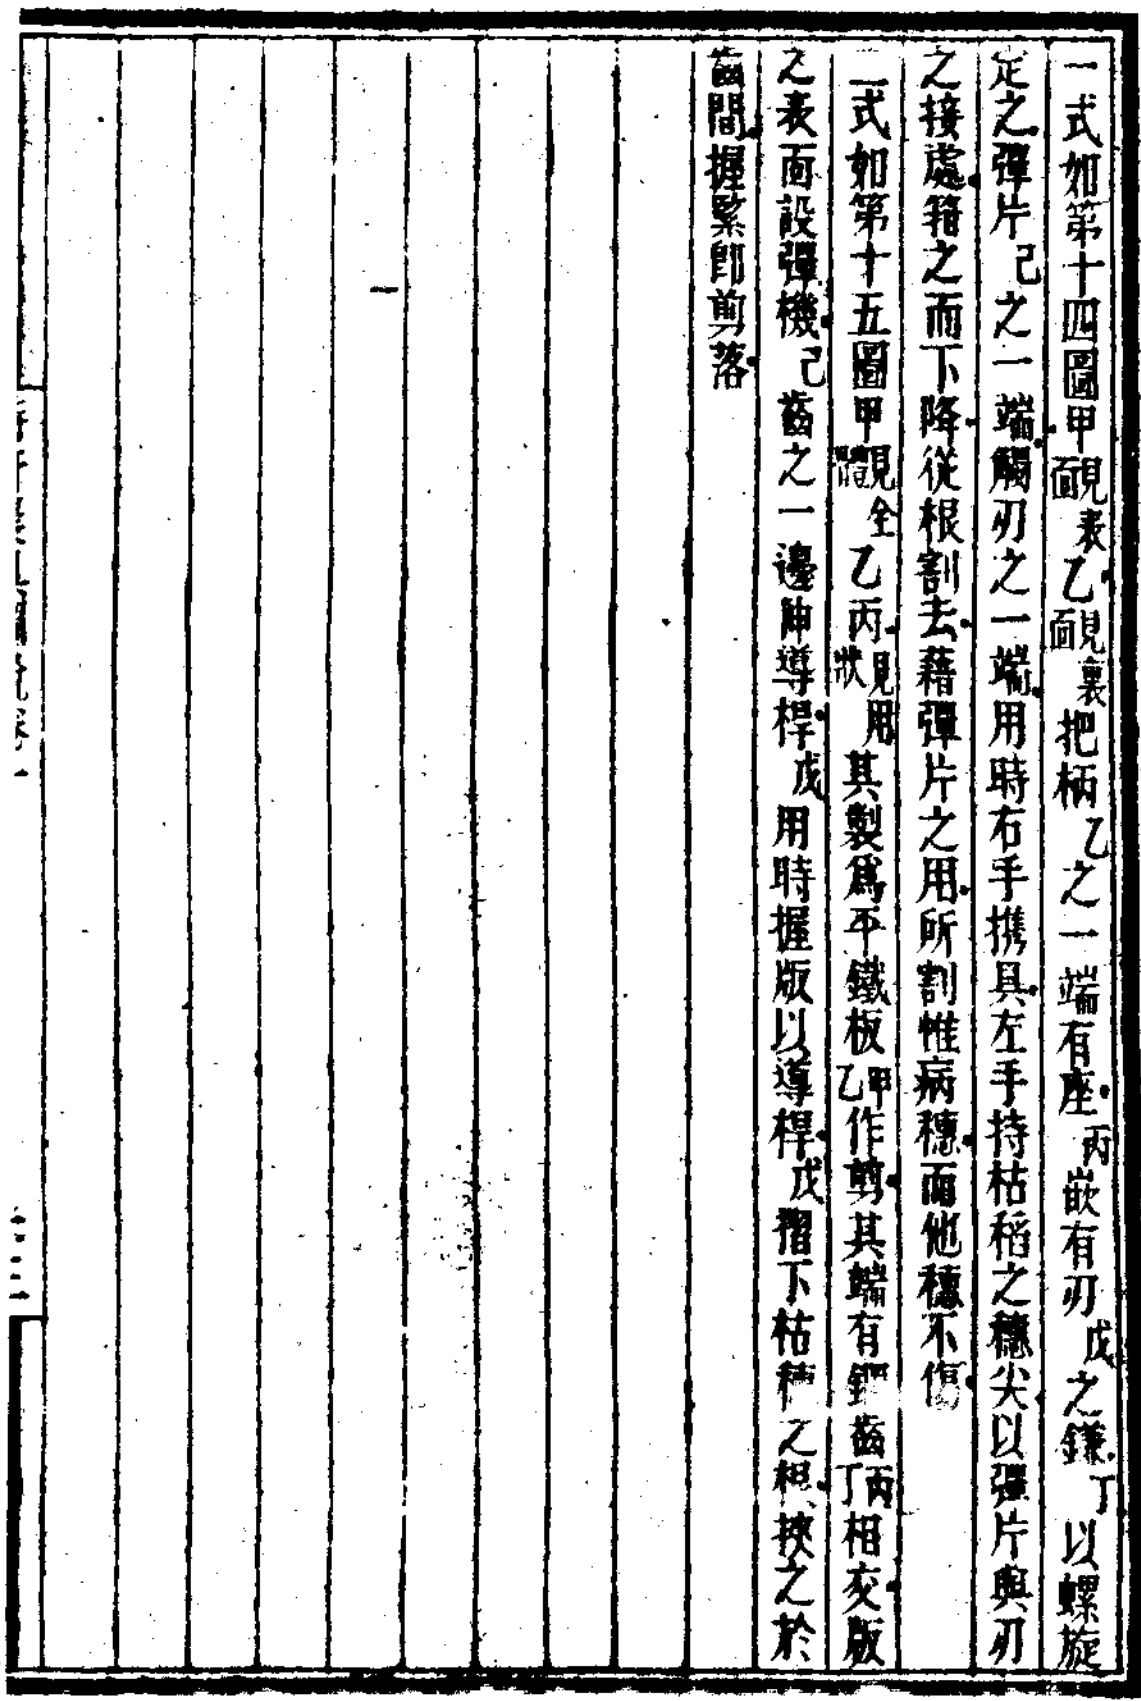 一式如第十四圖甲見表面乙見裏面把柄乙之一端有座丙嵌有刃戊之鎌丁以螺旋
定之彈片己之一端觸刃之一端用時右手携具左手持枯稻之穗尖以彈片與刃
之接處箝之而下降從根割去藉彈片之用所割惟病穗而他穗不傷
一式如第十五圖甲見全體乙丙見用狀其製爲平鐵板甲乙作剪其端有鋸齒丙丁相交版
之表面設彈機己齒之一邊伸導桿戊用時握版以導桿戊摺下枯穗之根挾之於
齒間握緊卽剪落